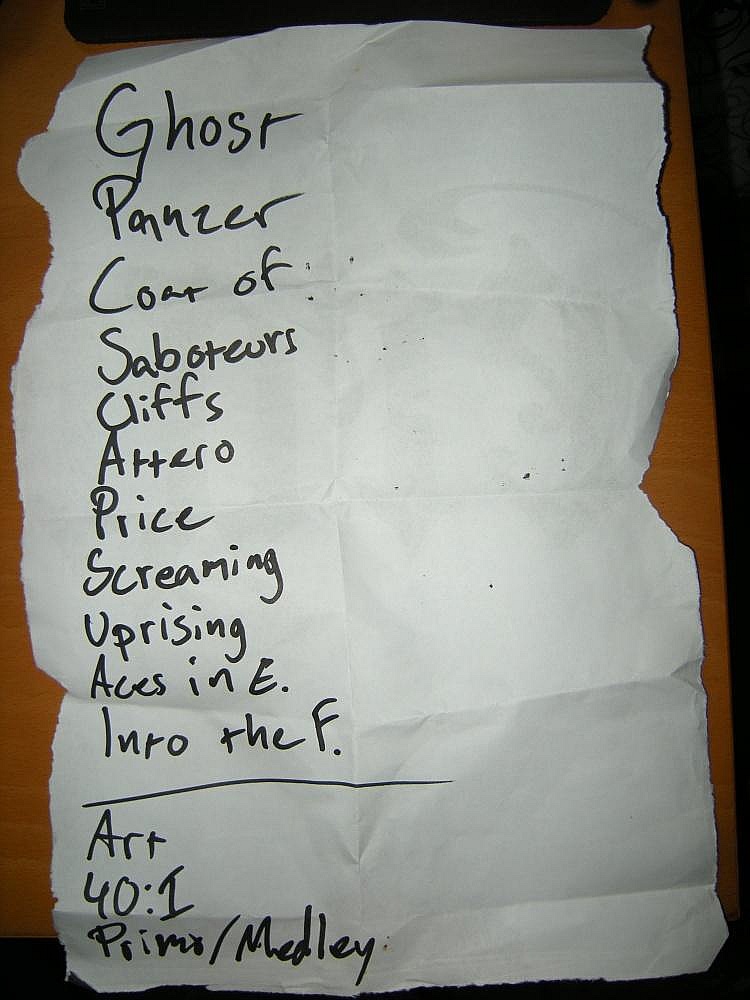 Ghost
Panzer
Coat of
Saboteurs
Cliffs
Attero
Price
Screaming
Uprising
Aces in E.
Into the F.
Art
40:1
Primo/Medley